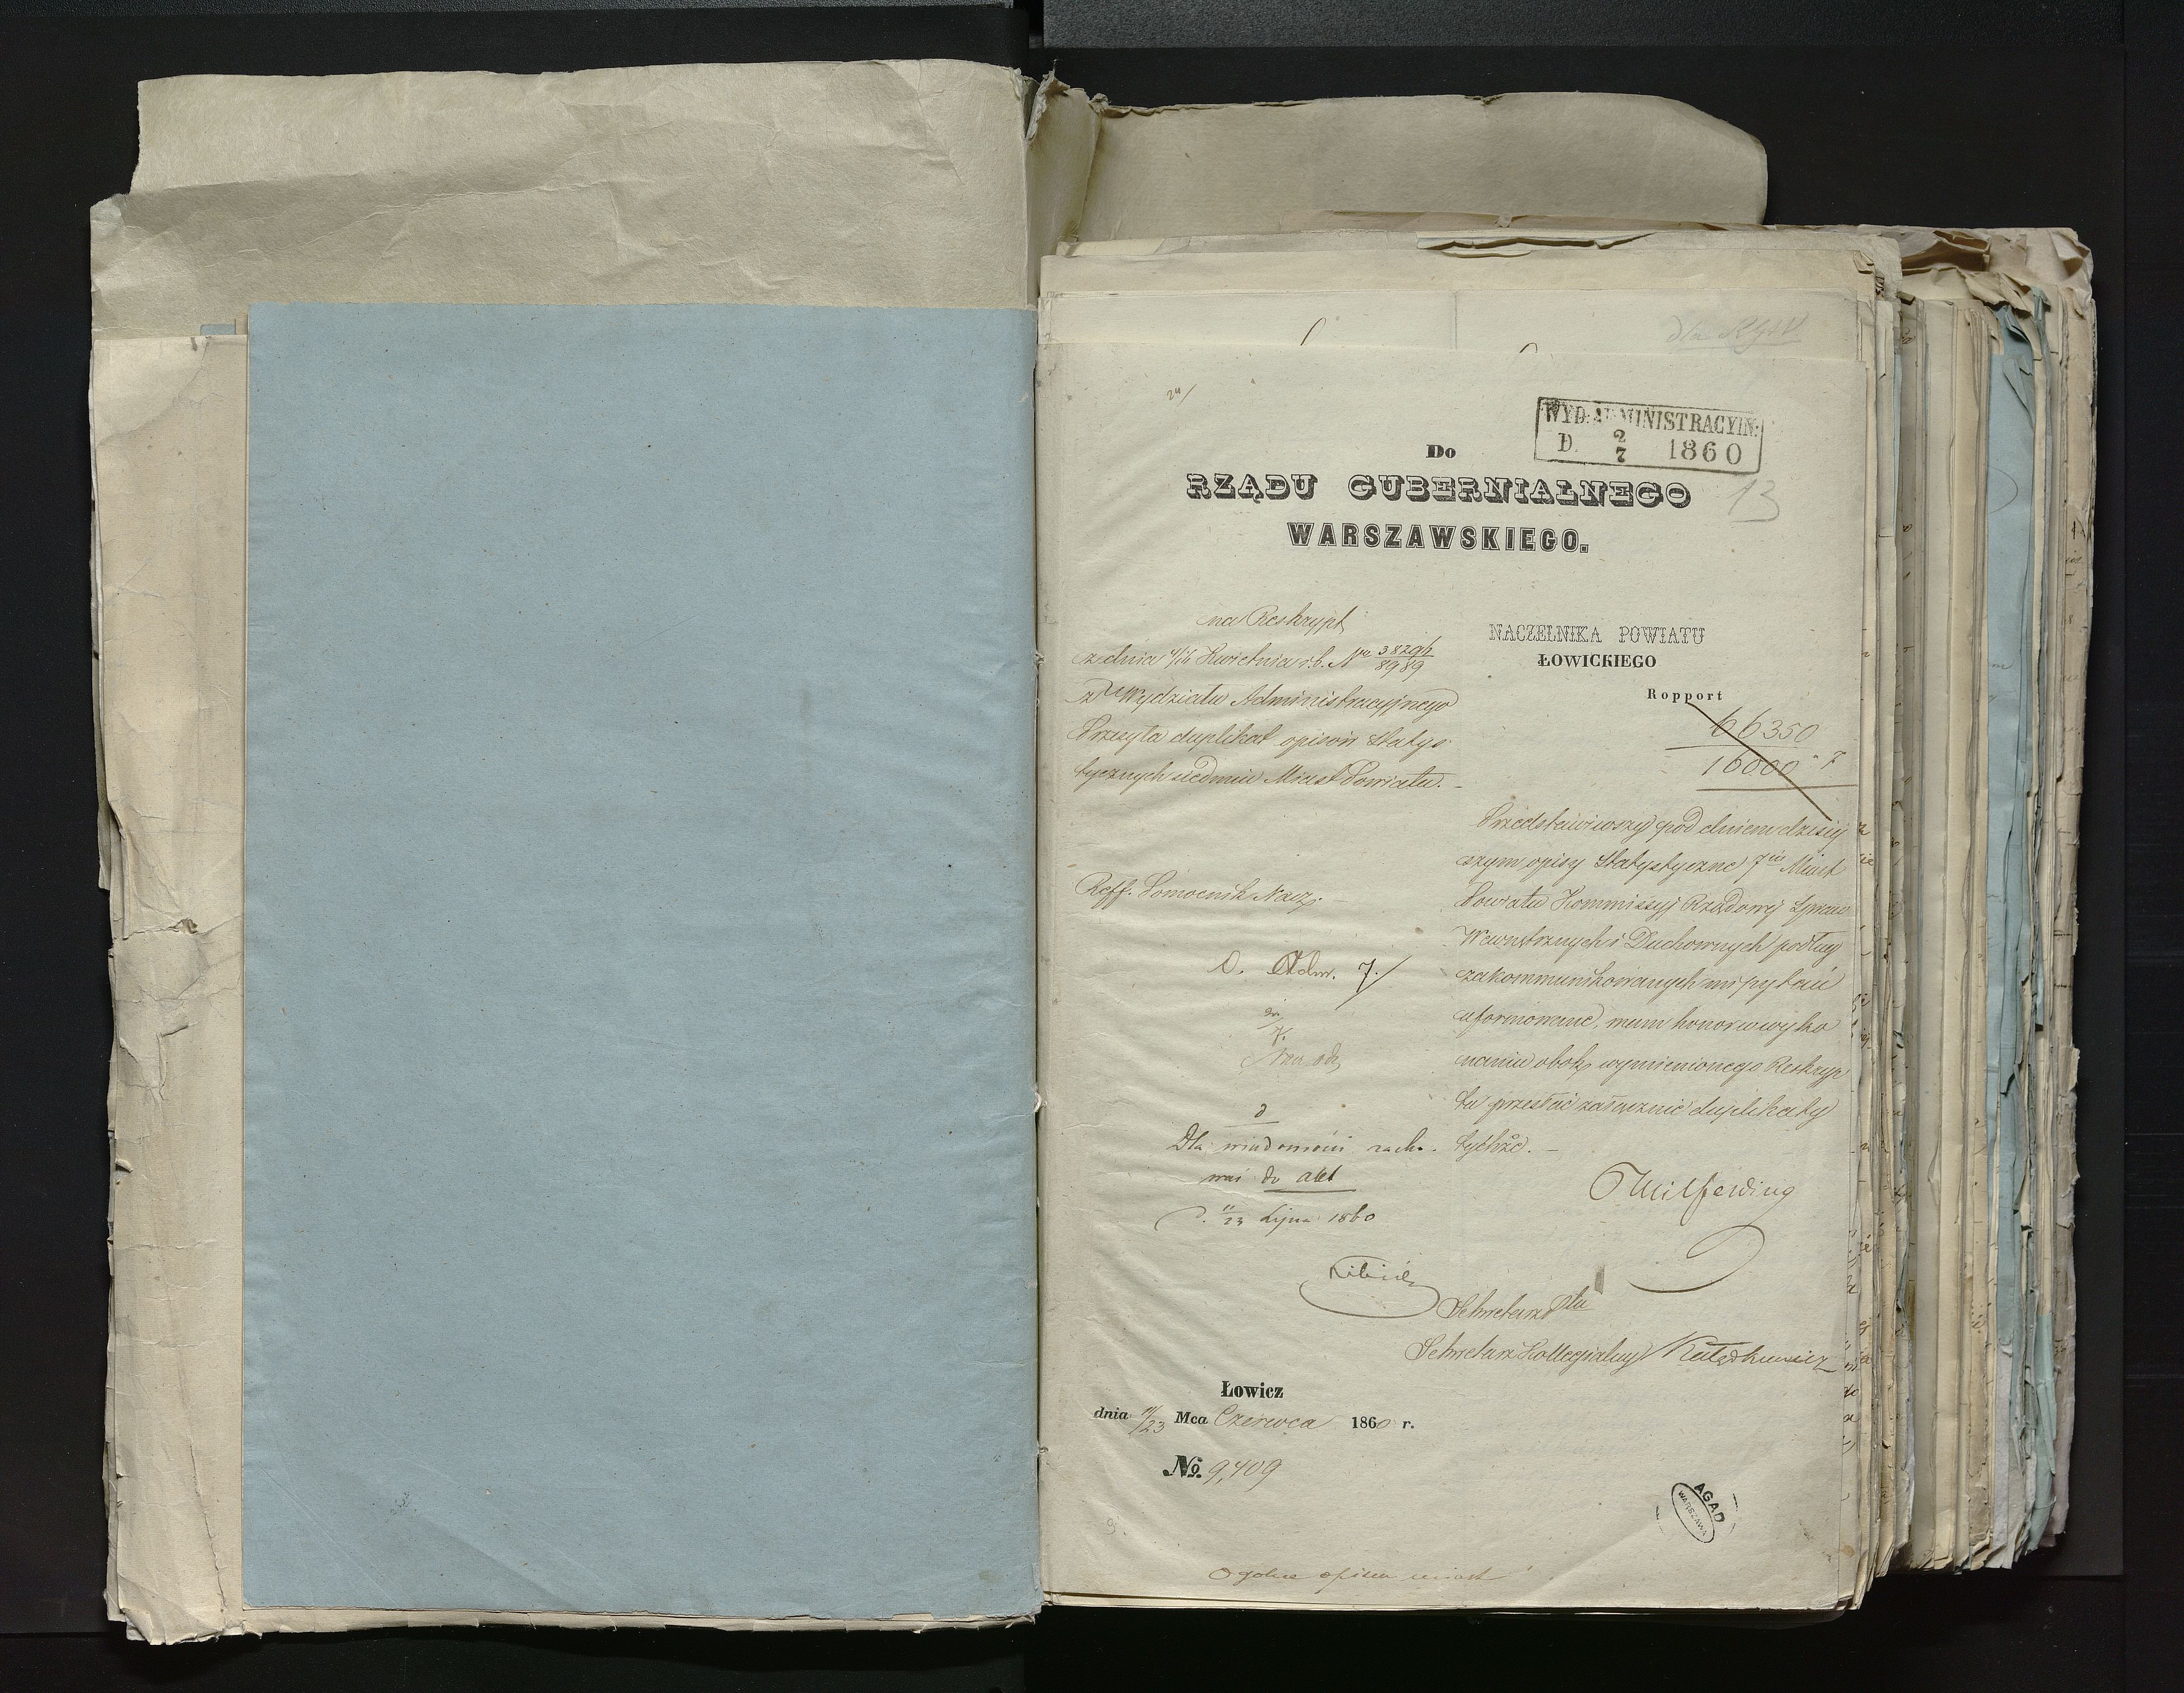 24/
WYD. ADMINISTRACYJN:
D. 2/7 1860
13
Do
RZĄDU GUBERNIALNEGO
WARSZAWSKIEGO.
na Reskrypt
z dnia 4/16 Kwietnia r.b. Nro 38296/8989
z Wydziału Administracyjnego
Przesyła duplikat opisów Statys
tycznych siedmiu Miast Powiatu. –
Reff. Pomocnik Nacz. –
D. Adm. 7./
Dla wiadomości zacho-
wać do akt
D. 11/23 Lipca 1860
NACZELNIKA POWIATU
ŁOWICKIEGO
Rapport
66350
16000 - 7
Przedstawiwszy pod dniem dzisiej
szym opisy Statystyczne 7iu Miast
Powiatu Kommissyi Rządowej Spraw
Wewnętrznych i Duchownych podług
zakommunikowanych mi pytań
uformowane, mam honor w wyko
naniu obok wymienionego Reskryp
tu przesłać załącznie duplikaty
tychże. –
Sekretarz Ptu
Sekretarz Kollegialny
Łowicz
dnia 11/23 Mca Czerwca 1860 r.
No. 9,409
AGAD
WARSZAWA
9.
Ogólne opisu miast